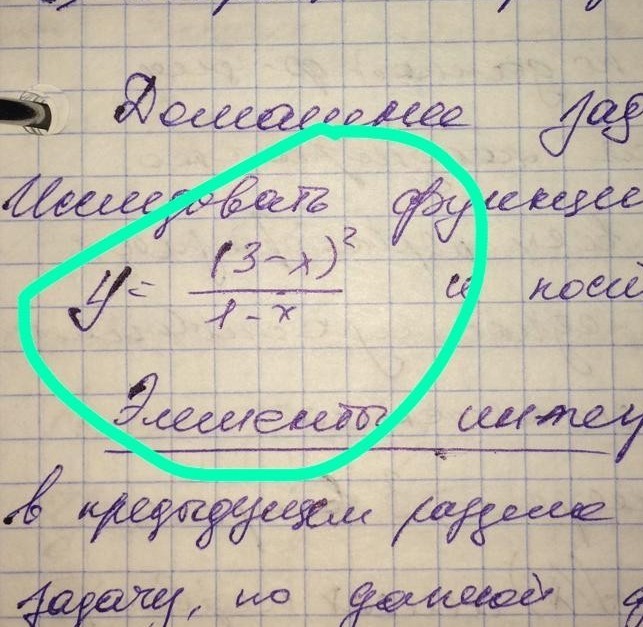 Домашнее зад
Исследовать функцию
y = (3-x)²/(1-x) и пост
Элементы интег
в предыдущем разделе
задачу, по данной ф